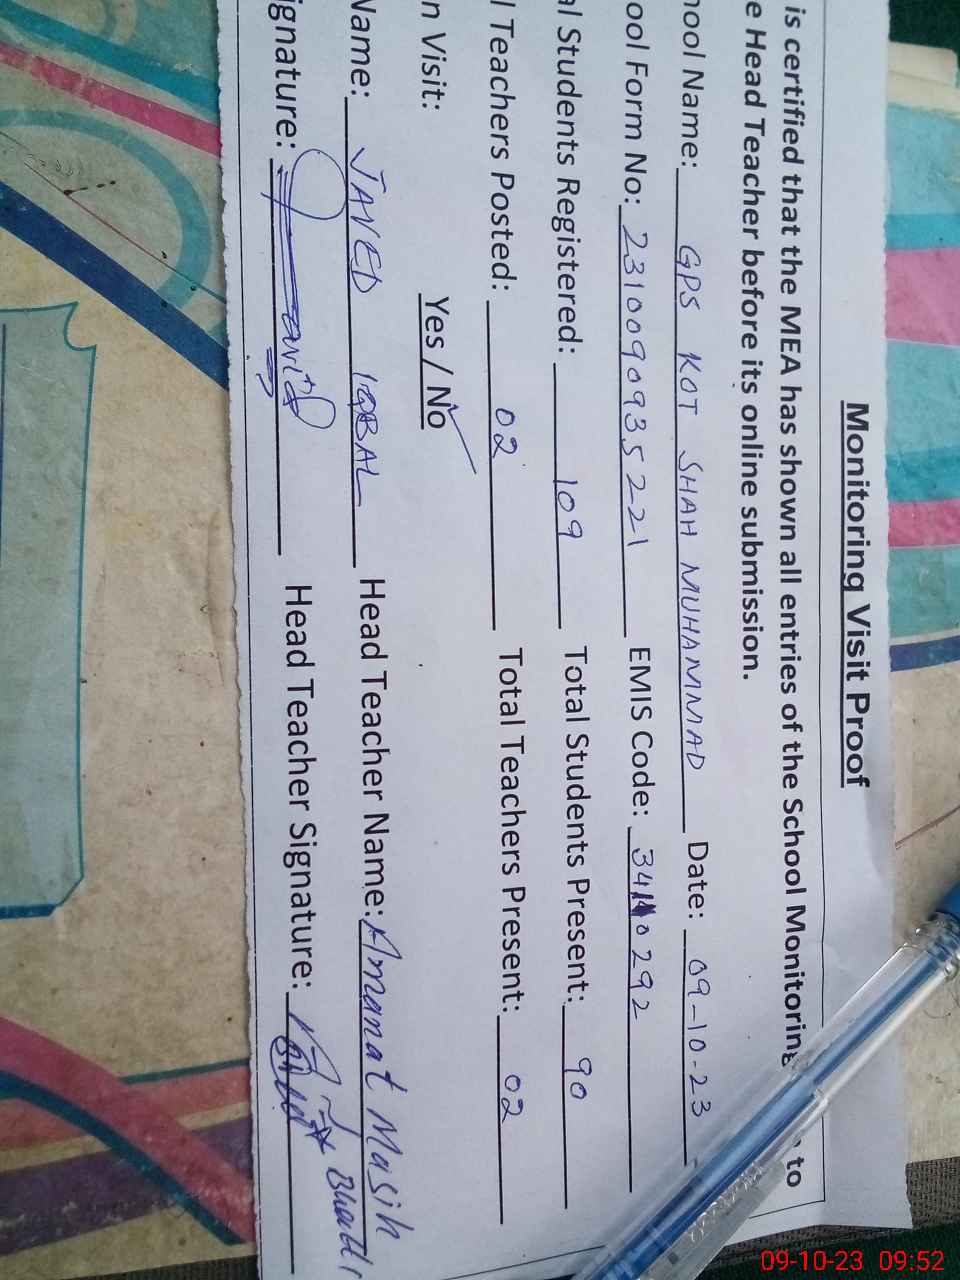 Monitoring Visit Proof
is certified that the MEA has shown all entries of the School Monitoring to
e Head Teacher before its online submission.
hool Name: GPS KOT SHAH MUHAMMAD Date: 09-10-23
ool Form No: 2310090935221 EMIS Code: 34110292
al Students Registered: 109 Total Students Present: 90
l Teachers Posted: 02 Total Teachers Present: 02
n Visit: Yes / No
Name: JAVED IQBAL Head Teacher Name: Amanat Masih Bhatti
ignature: Javid Head Teacher Signature:
09-10-23 09:52